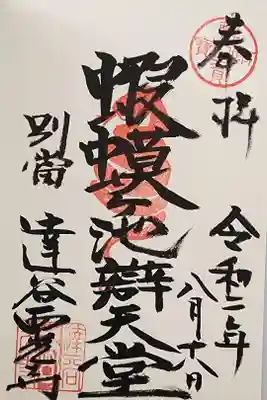 奉拝
令和二年
八月十八日
蝦蟇ヶ池辯天堂
別當
達谷窟